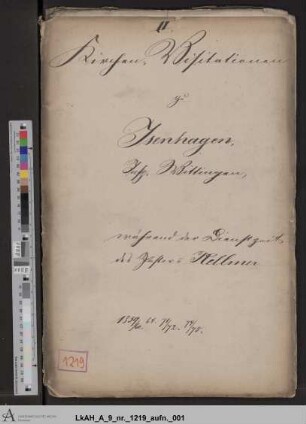 II.
Kirchen-Visitationen
zu
Isenhagen,
Insp. Wittingen,
während der Dienstzeit
des Pastors Hellmer
1219
LkAH_A_9_nr._1219_aufn._001